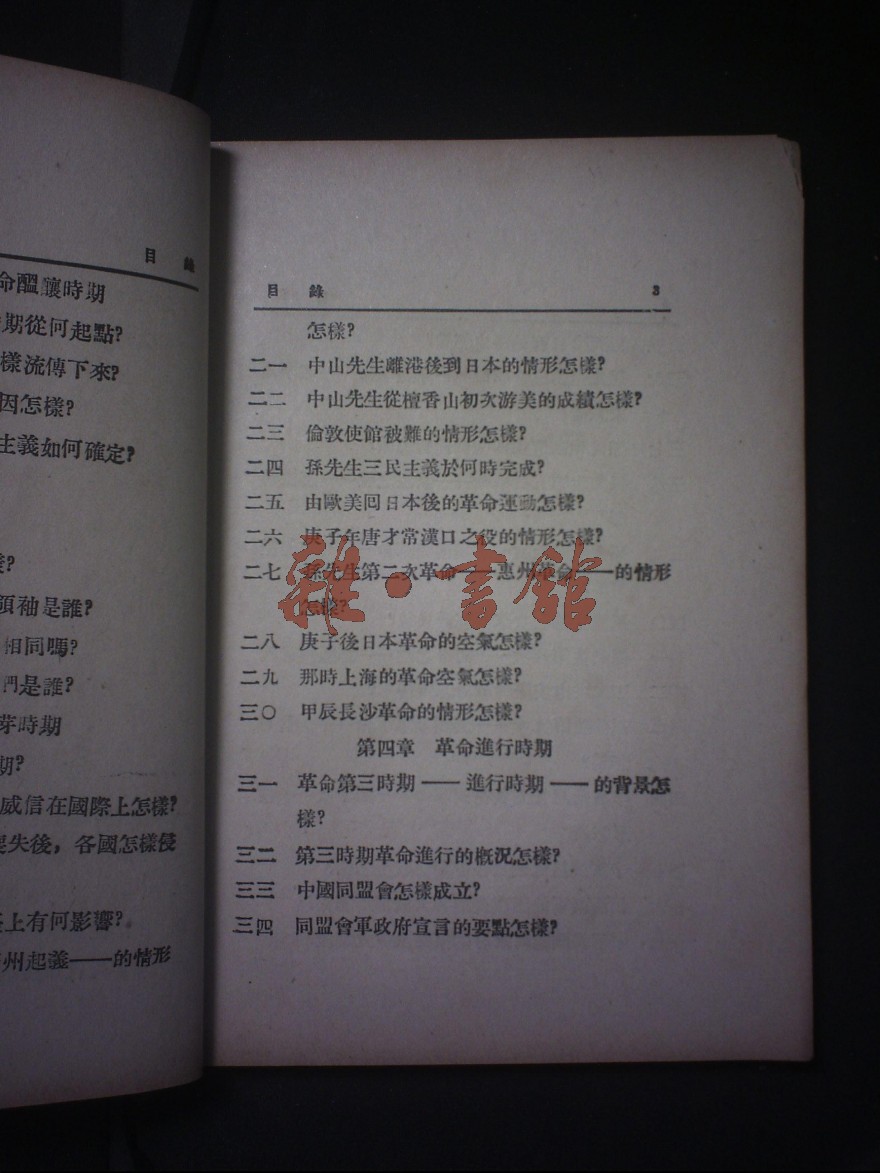 目錄
命醞釀時期
期從何起點?
樣流傳下來?
因怎樣?
主義如何確定?
?
領袖是誰?
相同嗎?
們是誰?
芽時期
期?
威信在國際上怎樣?
失後，各國怎樣侵
上有何影響?
州起義——的情形
目錄 3
怎樣?
二一 中山先生離港後到日本的情形怎樣?
二二 中山先生從檀香山初次游美的成績怎樣?
二三 倫敦使館被難的情形怎樣?
二四 孫先生三民主義於何時完成?
二五 由歐美囘日本後的革命運動怎樣?
二六 庚子年唐才常漢口之役的情形怎樣?
二七 孫先生第二次革命——惠州革命——的情形
怎樣?
二八 庚子後日本革命的空氣怎樣?
二九 那時上海的革命空氣怎樣?
三〇 甲辰長沙革命的情形怎樣?
第四章 革命進行時期
三一 革命第三時期——進行時期——的背景怎
樣?
三二 第三時期革命進行的概況怎樣?
三三 中國同盟會怎樣成立?
三四 同盟會軍政府宣言的要點怎樣?
雜·書館